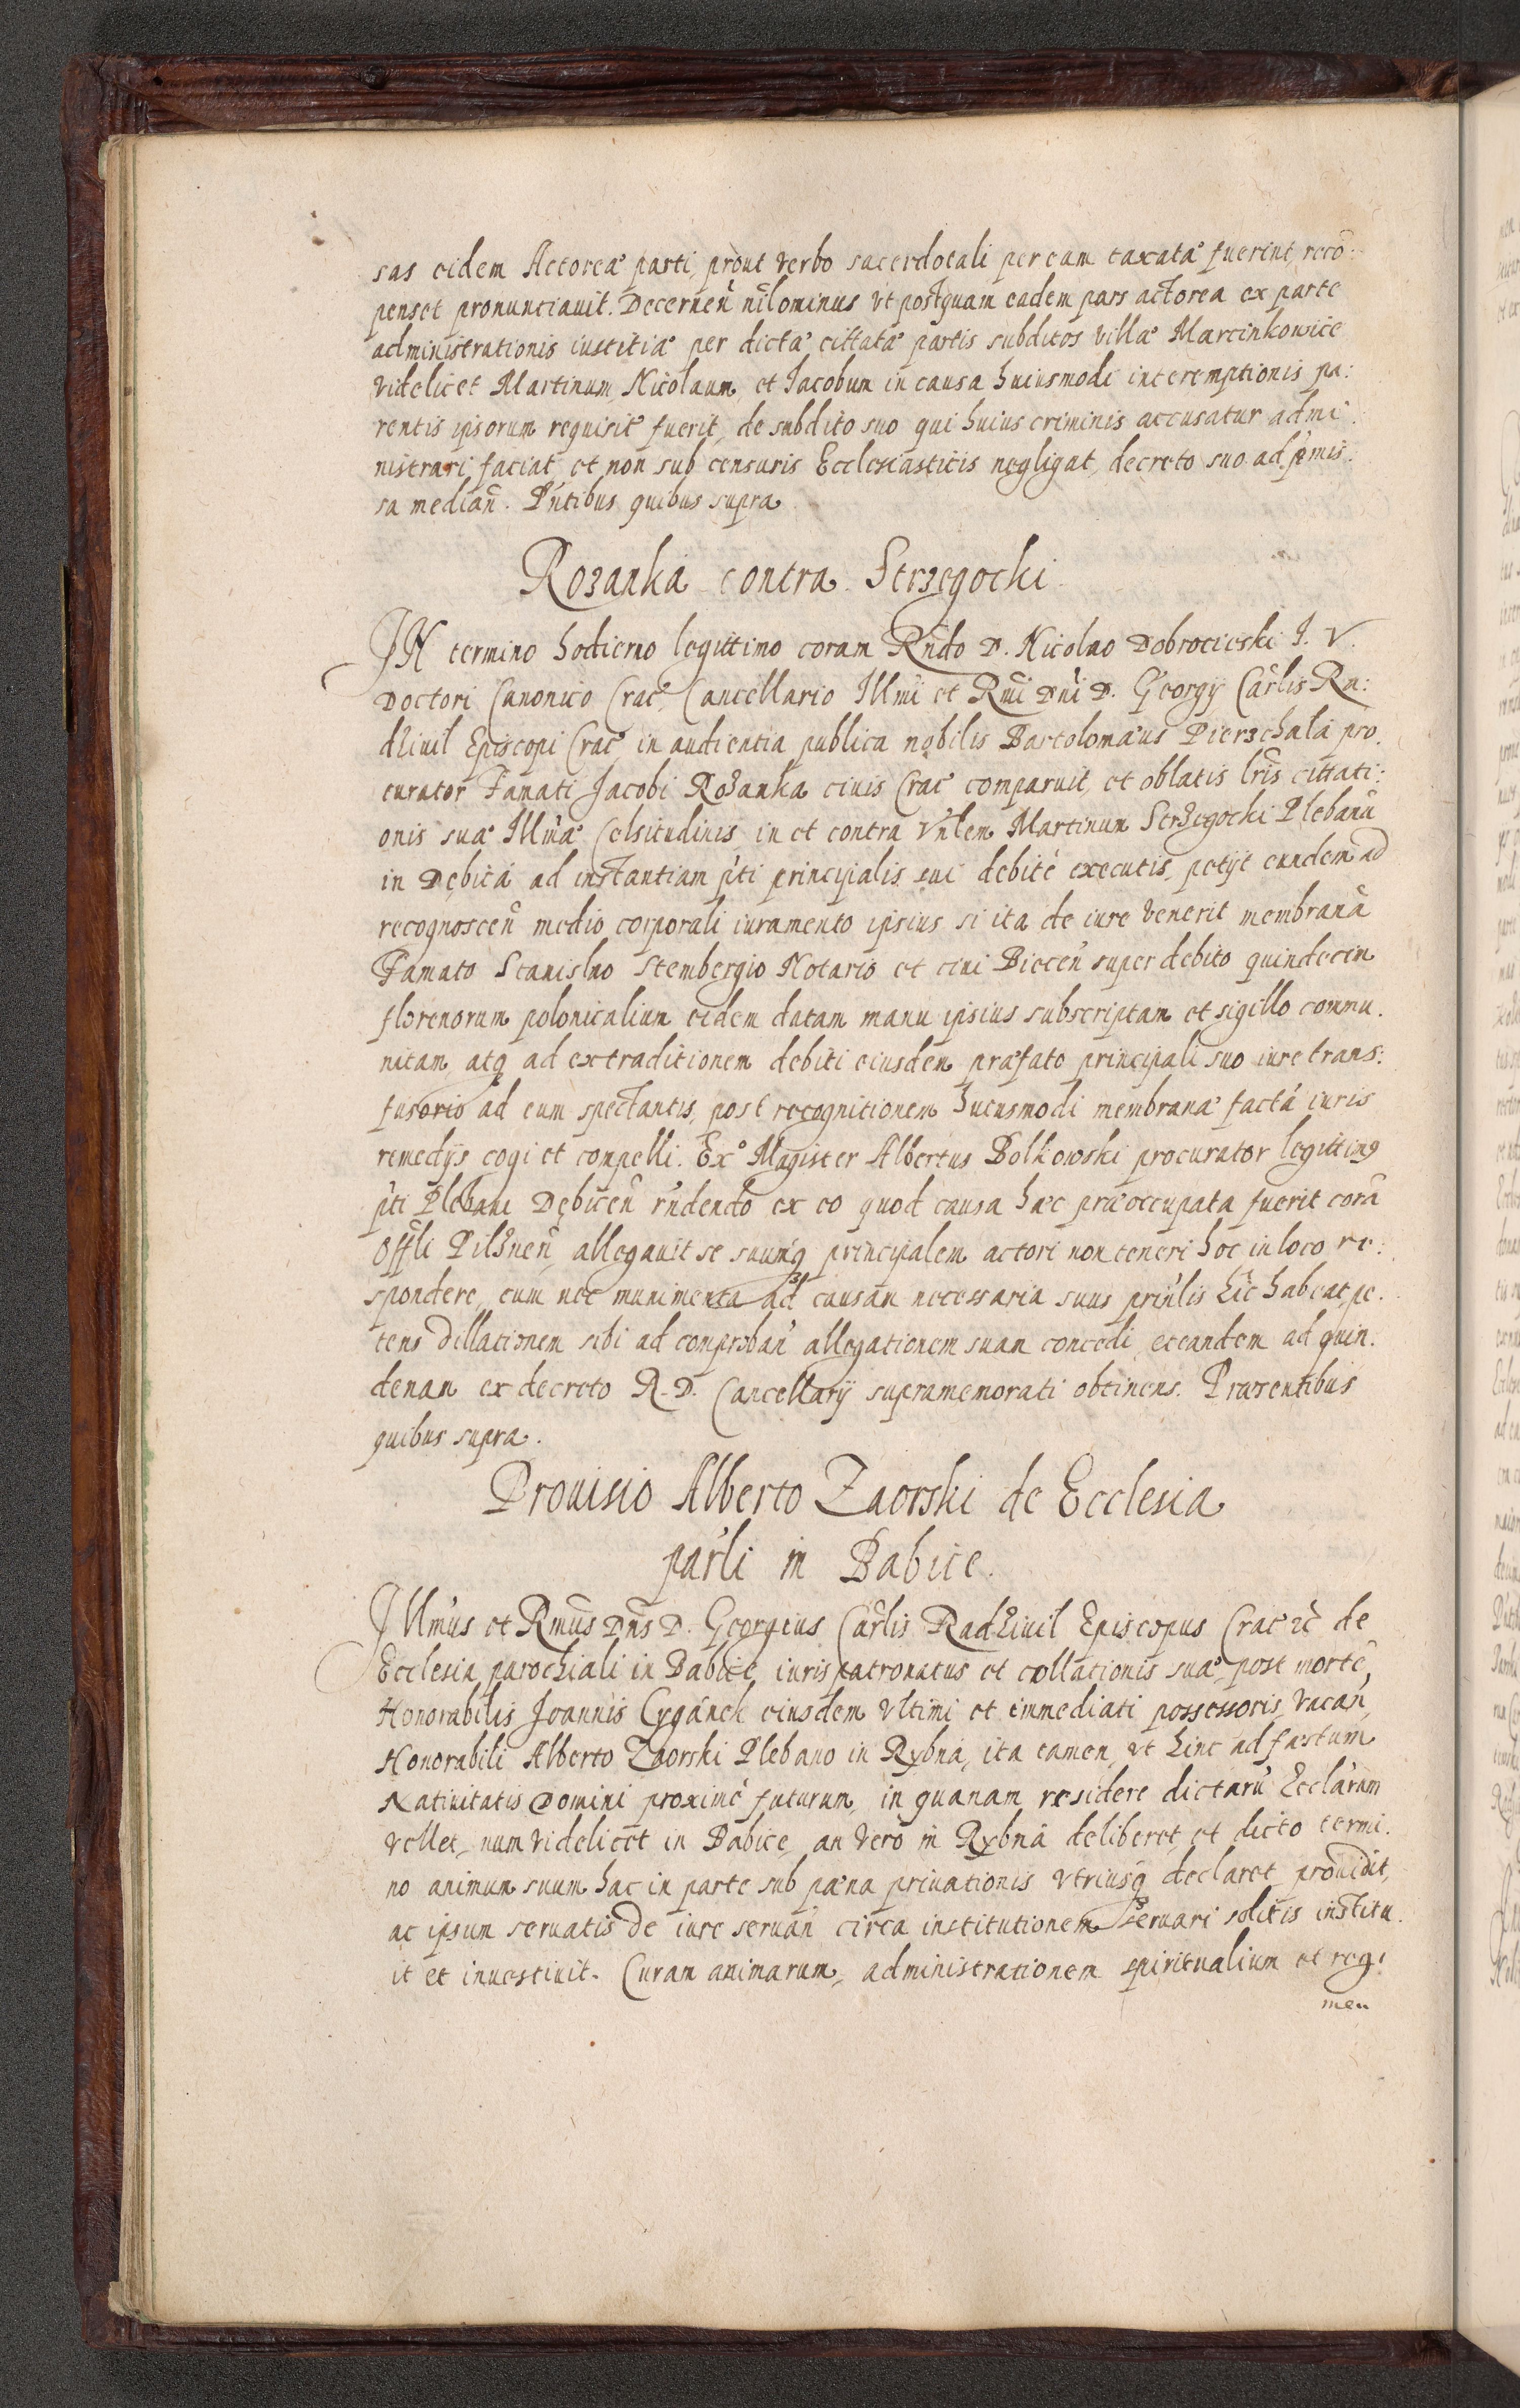 sas eidem Actoreæ parti, prout verbo sacerdotali per eam taxatæ fuerint, recō:
penset pronunciauit. Decerneñ nilominus vt postquam eadem pars actorea ex parte
administrationis iustitiæ per dictæ cittatæ partis subditos villæ Marcinkowice
videlicet Martinum, Nicolaum, et Jacobum in causa huiusmodi interemptionis pa:
rentis ipsorum requisit fuerit, de subdito suo qui huius criminis accusatur admi
nistrari faciat, et non sub censuris Ecclesiasticis negligat, decreto suo ad pmis:
sa median̄. Pn̄tibus quibus supra
Rozanka contra Strzegocki
IN termino hodierno legittimo coram Rndo D. Nicolao Dobrocieski J. V.
Doctori Canonico Crac, Cancellario Illmi et Rmi Dni D. Georgij Carlis Ra:
dziuil Episcopi Crac in audientia publica nobilis Bartolomæus Pierzchala pro.
curator Famati Jacobi Rożanka ciuis Crac comparuit, et oblatis lris cittati:
onis suæ Illmæ Celsitudinis in et contra Vnlem Martinum Strzegocki Plebanū
in Dębica ad instantiam pti principalis sui debitè executis, petijt eundem ad
recognosceñ medio corporali iuramento ipsius si ita de iure venerit membranā
Famato Stanislao Stembergio Notario et ciui Bieceñ super debito quindecim
florenorum polonicalium eidem datam manu ipsius subscriptam et sigillo commu.
nitam atq ad extraditionem debiti eiusdem præfato principali suo iure trans:
fusorio ad eum spectantis, post recognitionem huiusmodi membranæ factā iuris
remedijs cogi et compelli. Exº Magister Albertus Bolkowski procurator legittimꝯ
pti Plebani Dębiceñ rndendo ex eo quod causa hæc præoccupata fuerit corā
Offli Pilzneñ, allegauit se suumq principalem actori non teneri hoc in loco re:
spondere, cum nec munimenta ad causam necessaria suus prinlis hic habeat, pe.
tens dillationem sibi ad comproban̄ allegationem suam concedi, et eandem ad quin.
denam ex decreto R. D. Cancellarij supramemorati obtinens. Præsentibus
quibus supra.
Prouisio Alberto Zaorski de Ecclesia
parli in Babice.
Illmus et Rmus Dns D. Georgius Carlis Radziuil Episcopus Crac &c de
Ecclesia parochiali in Babice iurispatronatus et collationis suæ, post mortē
Honorabilis Joannis Cygánek eiusdem vltimi et immediati possessoris, vacan̄,
Honorabili Alberto Zaorski Plebano in Rybna, ita tamen, vt hinc ad festum
Natiuitatis Domini proximè futurum, in quanam residere dictarū Ecclarum
vellet, num videlicet in Babice, an verò in Rybna deliberet, et dicto termi.
no animum suum hac in parte sub pæna priuationis vtriusq declaret, prouidit,
ac ipsum seruatis de iure seruan̄ circa institutionem seruari solitis institu.
it et inuestiuit. Curam animarum, administrationem spiritualium et regi
men